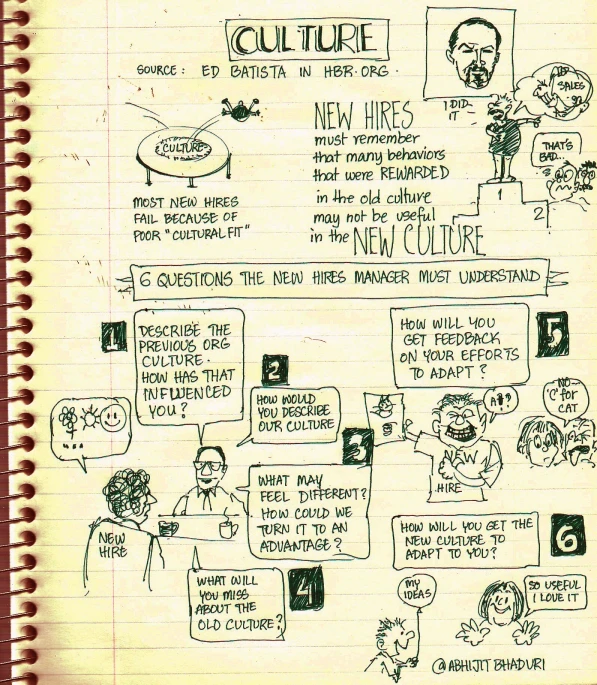 CULTURE
SOURCE: ED BATISTA IN HBR.ORG.
I DID-
IT
SALES
THAT'S
BAD...
CULTURE
NEW HIRES
must remember
that many behaviors
that were REWARDED
in the old culture
may not be useful
in the NEW CULTURE
1
2
MOST NEW HIRES
FAIL BECAUSE OF
POOR "CULTURAL FIT"
6 QUESTIONS THE NEW HIRES MANAGER MUST UNDERSTAND
1
DESCRIBE THE
PREVIOUS ORG
CULTURE.
HOW HAS THAT
INFLUENCED
YOU?
2
HOW WOULD
YOU DESCRIBE
OUR CULTURE
3
WHAT MAY
FEEL DIFFERENT?
HOW COULD WE
TURN IT TO AN
ADVANTAGE?
NEW
HIRE
4
WHAT WILL
YOU MISS
ABOUT THE
OLD CULTURE?
5
HOW WILL YOU
GET FEEDBACK
ON YOUR EFFORTS
TO ADAPT?
NO-
'C' for
CAT
NEW
HIRE
6
HOW WILL YOU GET THE
NEW CULTURE TO
ADAPT TO YOU?
MY
IDEAS
SO USEFUL
I LOVE IT
@ABHIJIT BHADURI